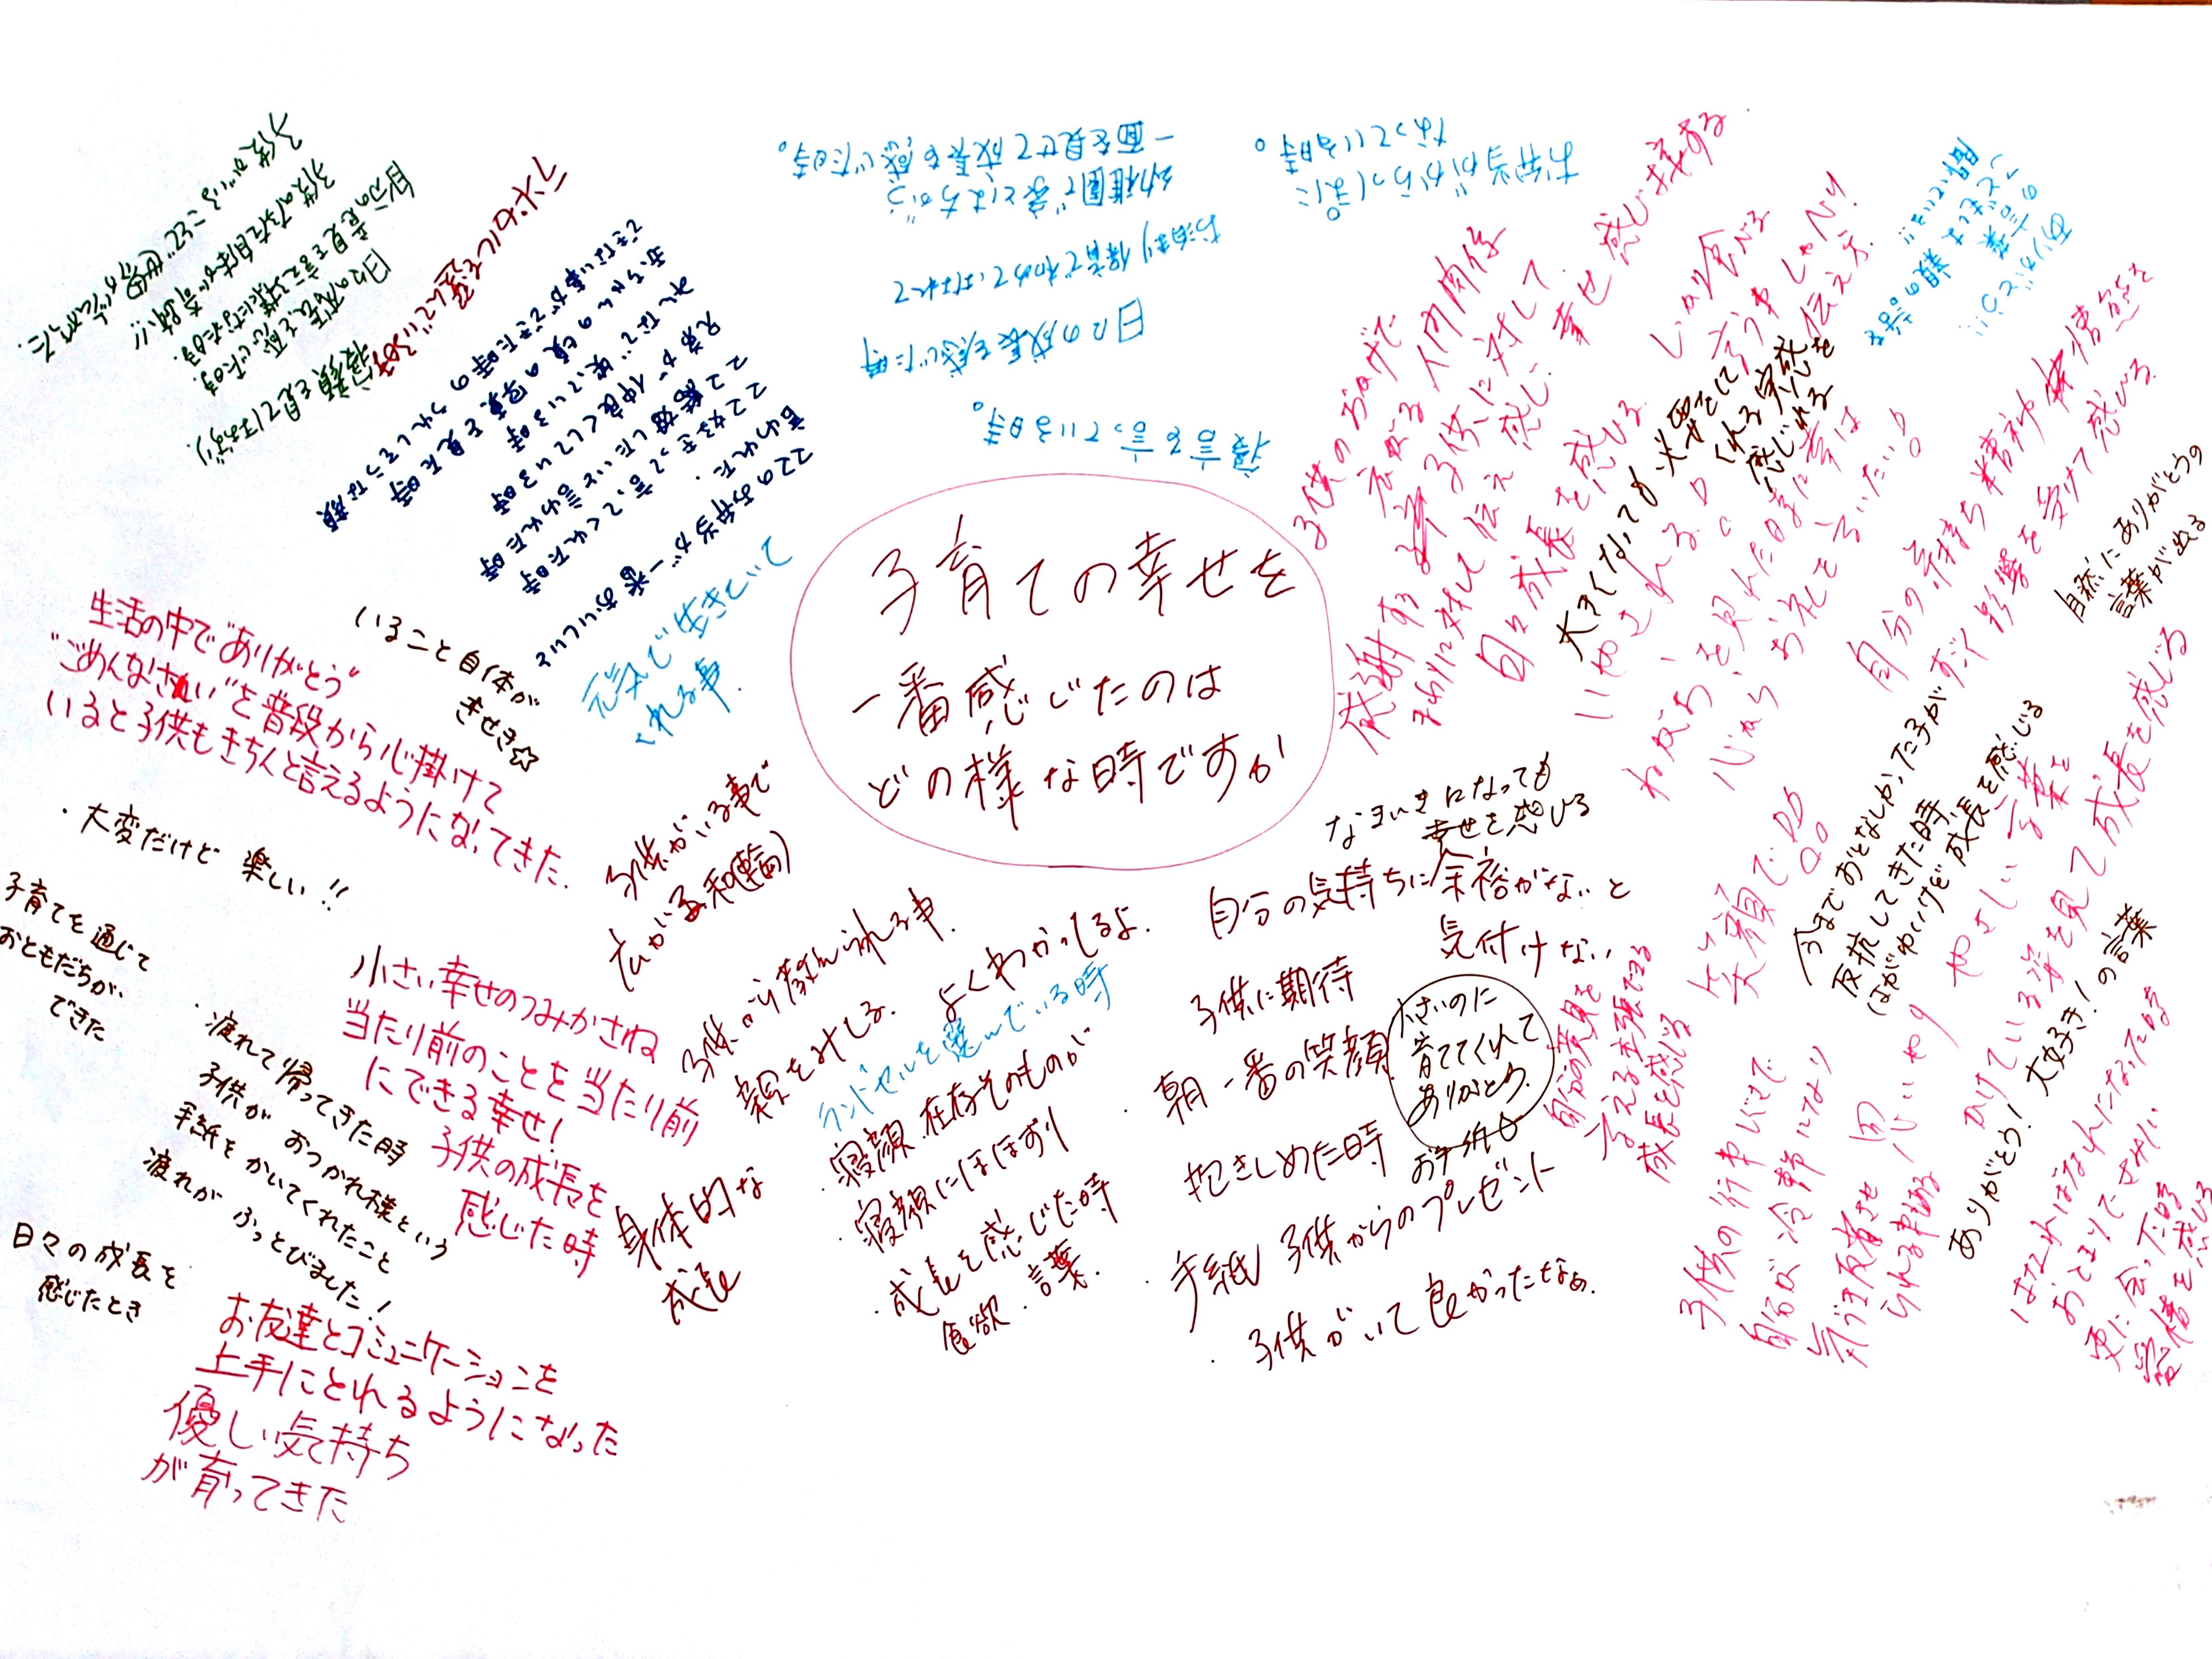 子育ての幸せを
一番感じたのは
どの様な時ですか
生活の中で"ありがとう"
"ごめんなさい"を普段から心掛けて
いると子供もきちんと言えるようになってきた.
いること自体が
きせき☆
元気で生きていて
くれる事.
・大変だけど 楽しい!!
子育てを通じて
おともだちが
できた
・疲れて帰ってきた時
子供が おつかれ様という
手紙をかいてくれたこと
疲れが ふっとびました!
日々の成長を
感じたとき
小さい幸せのつみかさね
当たり前のことを当たり前
にできる幸せ!
子供の成長を
感じた時
お友達とコミュニケーションを
上手にとれるようになった
優しい気持ち
が育ってきた
子供がいる事で
広がる和(輪)
子供から教えられる事.
親をみてる. よくわかってるよ.
ランドセルを選んでいる時
身体的な
成長
・寝顔 存在そのものが
寝顔にほほずり
・成長を感じた時
食欲・言葉.
なまいきになっても
幸せを感じる
自分の気持ちに余裕がないと
気付けない
子供に期待
・朝一番の笑顔
小さいのに
育ててくれて
ありがとう.
お手紙
抱きしめた時
・手紙 子供からのプレゼント
・子供がいて良かったなぁ.
子供がいることで世界がひろがった.
子供の存在自体が幸せ!!
自分の意見を言える様になった時.
日々の成長を感じた時.
寝顔を見ている
ママのお弁当が一番おいしいと
言われた.
ママ好きって言ってくれた時
ママと結婚したいと言われた時
兄弟が仲良くしている時
赤ちゃんの頃の写真を見た時
できない事ができた時のうれしそうな顔
寝言を言っている時。
日々の成長を感じた時
お泊まり保育で
幼稚園で家とはちがう
一面を見せて成長を感じた時。
お弁当がからっぽに
なっている時。
子供のおかげで
広がる人間関係
感謝する
日々成長を感じる
大きくなっても必要としてくれる実感を
感じれる
いやされる
心からお礼を言いたい!
自分の気持ち 精神 状態を
すごく影響を受けて感じる.
自然にありがとうの
言葉が出る
今までおとなしかった子が
反抗してきた時、
はがゆいけど成長を感じる
笑顔で
自分の意見を
言える主張できる
成長を感じる
やさしい言葉を
かけている姿を見て成長を感じる
ありがとう! 大好き!の言葉
子供の行事などで
自分が冷静になり
気づき反省させ
られる事がある
はなればなれになった時
おとまりでさみしい
更に会った時
愛情を感じる